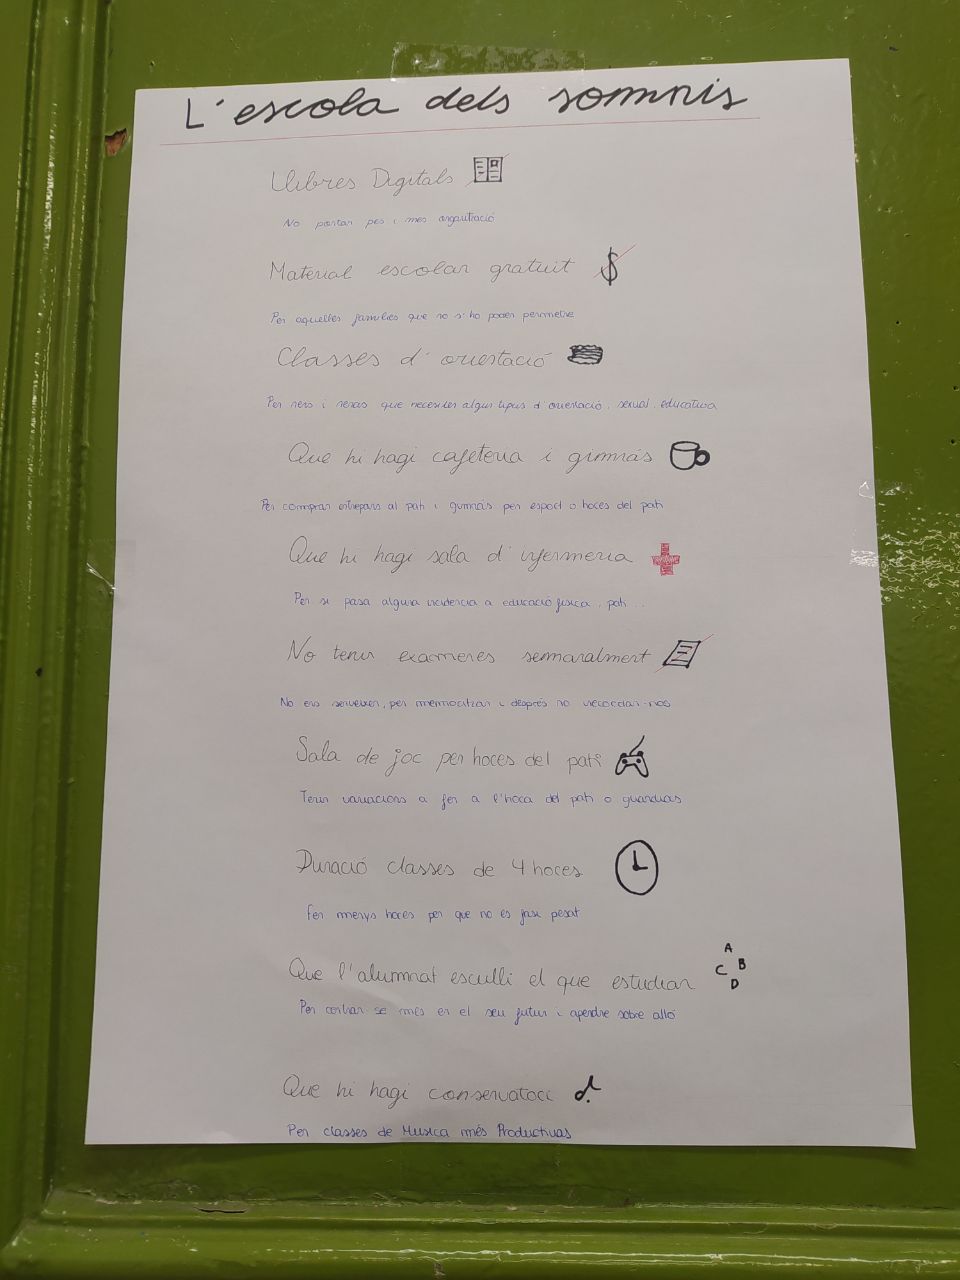 L'escola dels somnis
Llibres Digitals
No portar pes i mes organització
Material escolar gratuit
$
Per aquelles families que no s'ho poden permetre
Classes d'orientació
Per nens i nenas que necesiten algun tipus d'orientació, sexual, educativa
Que hi hagi cafeteria i gimnàs
Per comprar entrepans al pati i gimnàs per esport o hores del pati
Que hi hagi sala d'infermeria
Per si pasa alguna incidencia a educació fisica, pati...
No tenir examenes semanalment
No ens serveixen, per memoritzar i després no recordar-nos
Sala de joc per hores del pati
Tenir variacions a fer a l'hora del pati o guardias
Duració classes de 4 hores
Fer menys hores per que no es faxi pesat
Que l'alumnat esculli el que estudiar
A
C B
D
Per centrar se més en el seu futur i apendre sobre allò
Que hi hagi conservatori
Per classes de Musica més Productivas